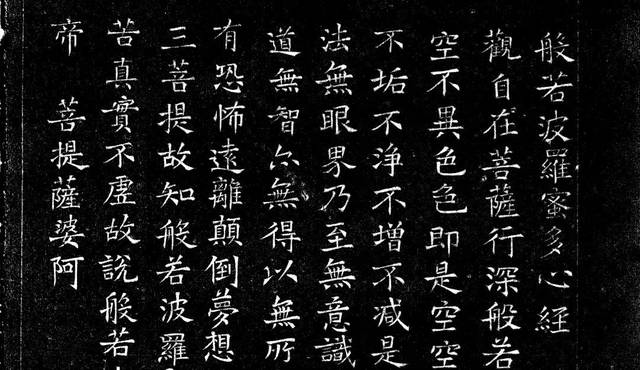 般若波羅蜜多心經
觀自在菩薩行深般若
空不異色色即是空空
不垢不淨不增不减是
法無眼界乃至無意識
道無智亦無得以無所
有恐怖遠離顛倒夢想
三菩提故知般若波羅
苦真實不虛故說般若
帝 菩提薩婆阿